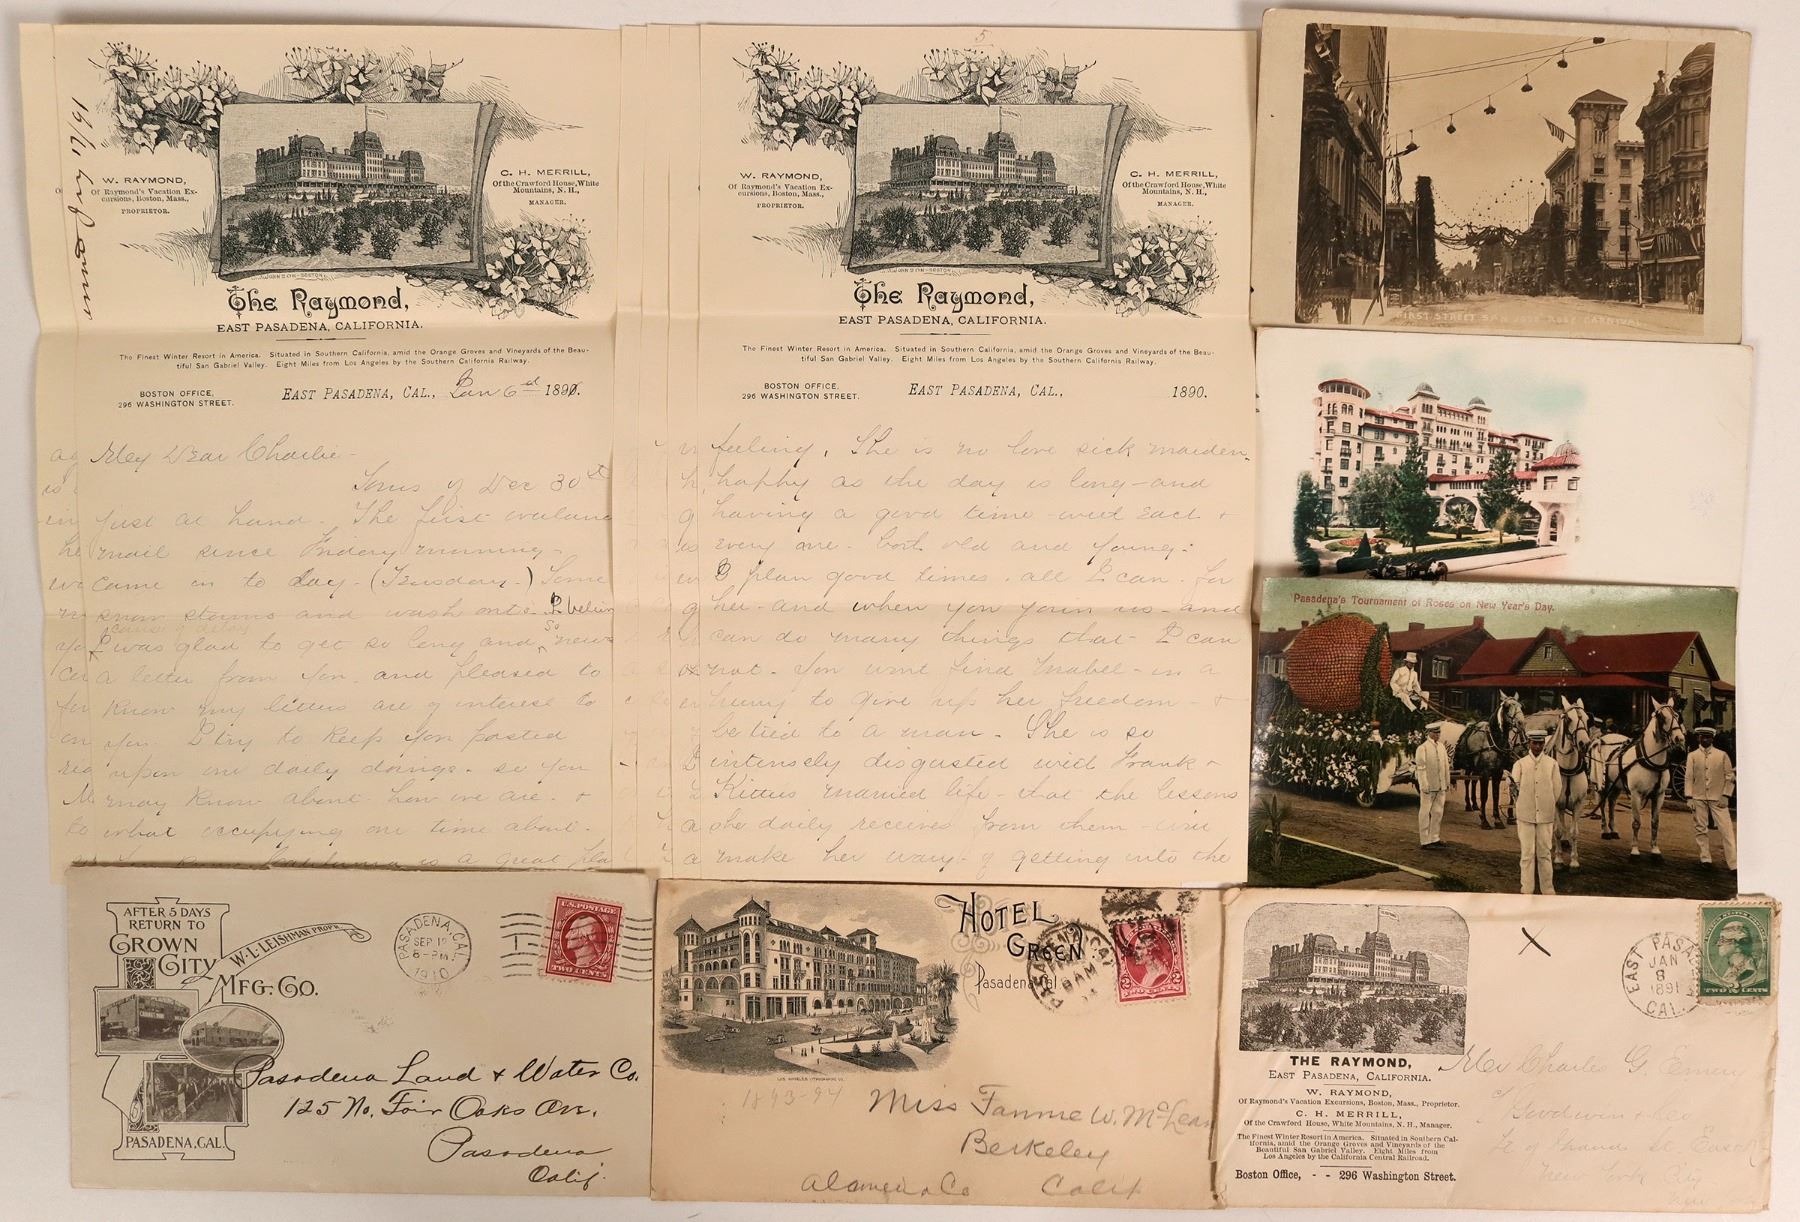 W. RAYMOND,
Of Raymond's Vacation Ex-
cursions, Boston, Mass.,
PROPRIETOR.
C. H. MERRILL,
Of the Crawford House, White
Mountains, N. H.,
MANAGER.
JOHNSON-BOSTON
The Raymond,
EAST PASADENA, CALIFORNIA.
The Finest Winter Resort in America. Situated in Southern California, amid the Orange Groves and Vineyards of the Beau-
tiful San Gabriel Valley. Eight Miles from Los Angeles by the Southern California Railway.
BOSTON OFFICE,
296 WASHINGTON STREET.
EAST PASADENA, CAL., Jan 6 1891.
My Dear Charlie-
Yours of Dec 30st
just at hand. The first overland
mail since Friday morning-
came in to day- (Tuesday-) Some
snow storms and wash outs I believe
cause of delay
I was glad to get so long and so newsy
a letter from you. and pleased to
know my letters are of interest to
you. I try to keep you posted
upon our daily doings. so you
may know about how we are. &
what occupying our time about.
California is a great
5
W. RAYMOND,
Of Raymond's Vacation Ex-
cursions, Boston, Mass.,
PROPRIETOR.
C. H. MERRILL,
Of the Crawford House, White
Mountains, N. H.,
MANAGER.
JOHNSON-BOSTON
The Raymond,
EAST PASADENA, CALIFORNIA.
The Finest Winter Resort in America. Situated in Southern California, amid the Orange Groves and Vineyards of the Beau-
tiful San Gabriel Valley. Eight Miles from Los Angeles by the Southern California Railway.
BOSTON OFFICE,
296 WASHINGTON STREET.
EAST PASADENA, CAL., 1890.
feeling. She is no love sick maiden,
happy as the day is long-and
having a good time with each &
every one- both old and young-
I plan good times. all I can. for
her-and when you join us-and
can do many things that I can
not- you wont find Mabel-in a
hurry to give up her freedom- &
be tied to a man- She is so
intensely disgusted with Frank &
Kitties married life-that the lessons
she daily receives from them-will
make her wary-of getting into the
FIRST STREET SAN JOSE ROSE CARNIVAL
Pasadena's Tournament of Roses on New Year's Day.
AFTER 5 DAYS
RETURN TO
CROWN
CITY
MFG. CO.
W. L. LEISHMAN PROPR.
PASADENA, CAL.
PASADENA, CAL.
SEP 12
8-PM
1910
U.S. POSTAGE
TWO CENTS
Pasadena Land & Water Co.
125 No. Fair Oaks Ave.
Pasadena
Calif.
HOTEL
GREEN
Pasadena Cal.
1893-94
Miss Fannie W. McLean
Berkeley
Alameda Co Calif
THE RAYMOND,
EAST PASADENA, CALIFORNIA.
W. RAYMOND,
Of Raymond's Vacation Excursions, Boston, Mass., Proprietor.
C. H. MERRILL,
Of the Crawford House, White Mountains, N. H., Manager.
The Finest Winter Resort in America. Situated in Southern Cal-
ifornia, amid the Orange Groves and Vineyards of the
Beautiful San Gabriel Valley. Eight Miles from
Los Angeles by the California Central Railroad.
Boston Office, - - 296 Washington Street.
X
EAST PASADENA
JAN
8
1891
CAL.
TWO CENTS
Mr Charles G. Emery
New York City